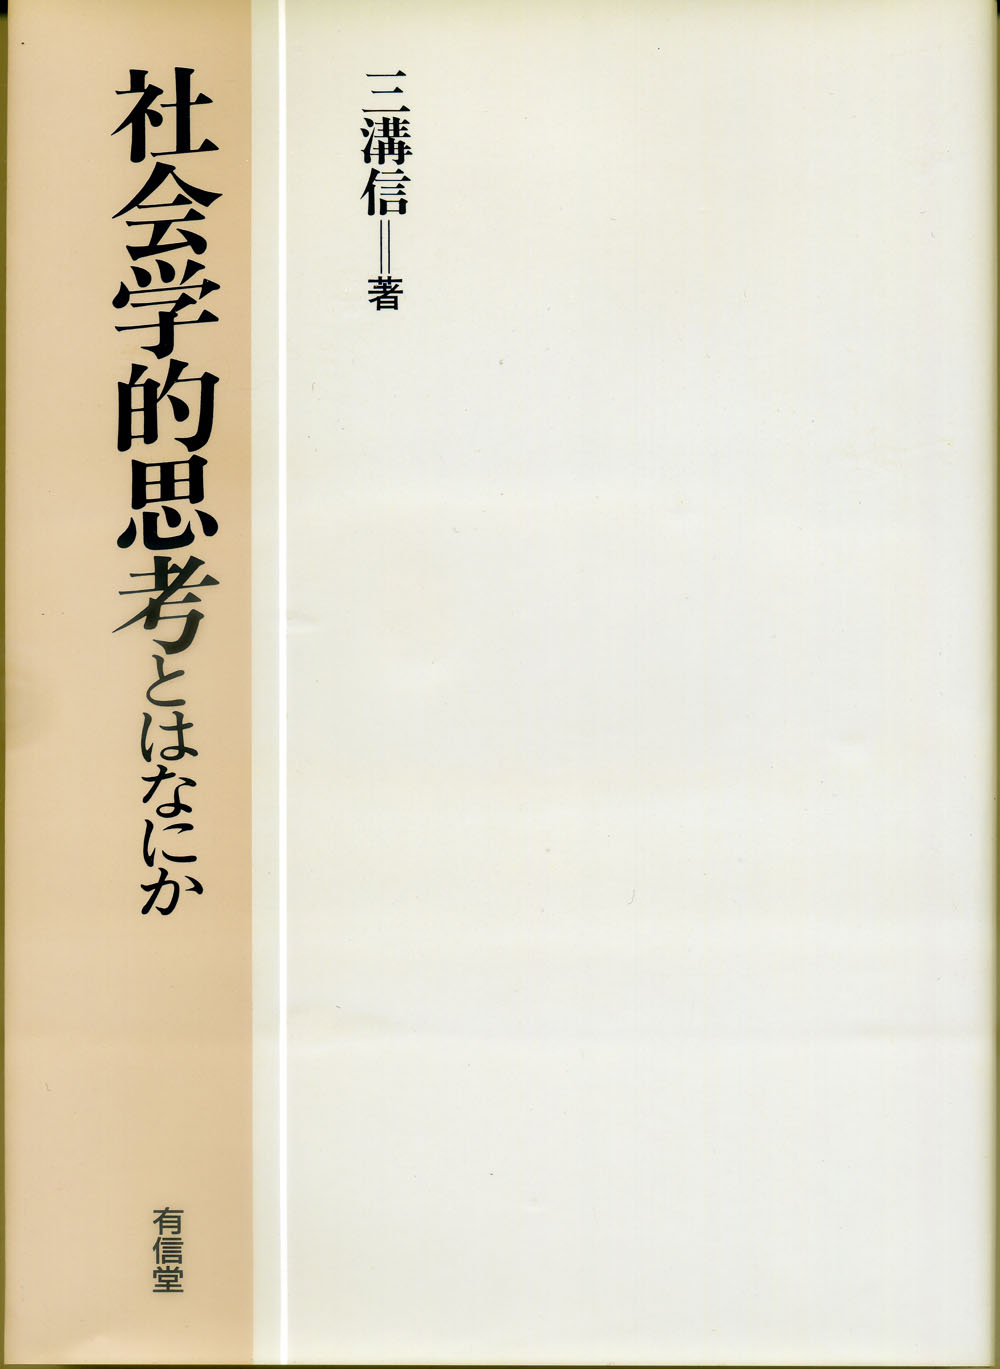 三溝信＝著
社会学的思考とはなにか
有信堂